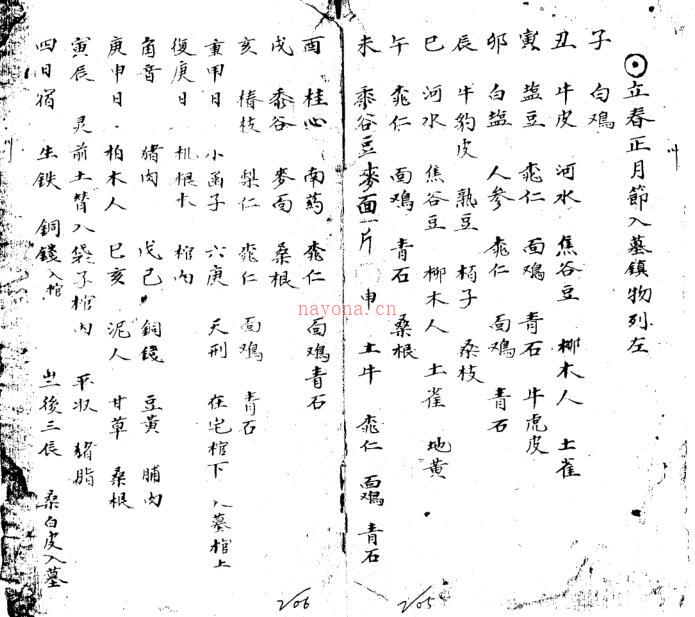 立春正月節入墓鎮物列左
子 白鳮
丑 牛皮 河水 焦谷豆 柳木人 土雀
寅 盐豆 桃仁 面鳮 青石 牛虎皮
卯 白盐 人參 桃仁 面鳮 青石
辰 牛豹皮 熟豆 栢子 桑枝
巳 河水 焦谷豆 柳木人 土雀 地黄
午 桃仁 面鳮 青石 桑根
未 黍谷豆 麥面一片 申 土牛 桃仁 面鳮 青石
酉 桂心 南药 桃仁 面鳮 青石
戌 黍谷 麥面 桑根
亥 椿枝 梨仁 桃仁 面鳮 青石
重甲日 小函子 六庚 天刑 在宅棺下 入墓棺上
復庚日 机根木 棺内
角音 猪肉 戊己 銅錢 豆黄 脯肉
庚申日 柏木人 巳亥 泥人 甘草 桑根
寅辰 灵前土 入袋子棺内 平收 猪脂
四日宿 生鉄 銅錢入棺 後三辰 桑白皮入墓
nayona.cn
206
205